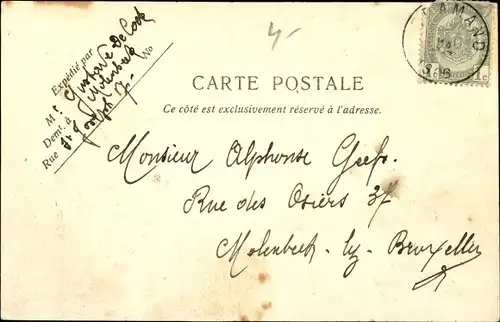 4-
ST AMAND
1c
Expédié par
Mr Gustave De Cock
Demt. à Molenbeek
Rue St Joseph No 7-
CARTE POSTALE
Ce côté est exclusivement réservé à l'adresse.
Monsieur Alphonse
Rue des Osiers 37
Molenbeek-lez-Bruxelles